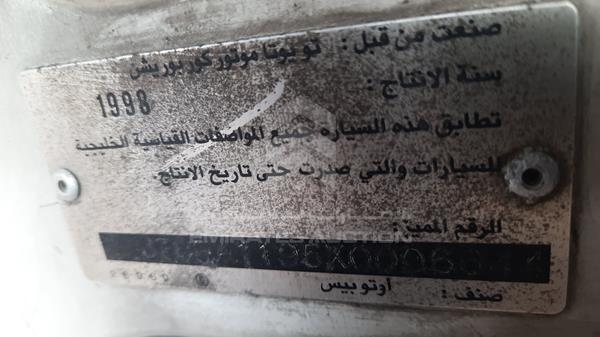 صنعت من قبل : تويوتا موتور كوربوريشن
سنة الانتاج : 1998
تطابق هذه السياره جميع المواصفات القياسية الخليجية
للسيارات والتي صدرت حتى تاريخ الانتاج.
الرقم المميز :
صنف : أوتوبيس
EMIRATES AUCTION